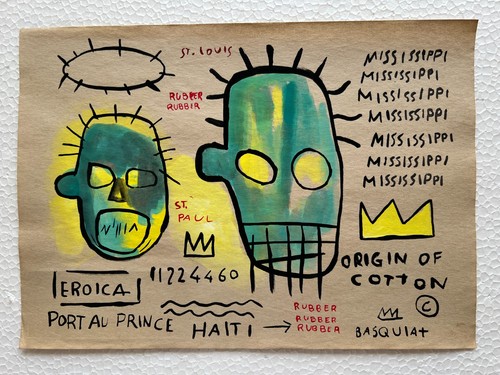 ST. LOUIS
RUBBER
RUBBER
MISSISSIPPI
MISSISSIPPI
MISSISSIPPI
MISSISSIPPI
MISSISSIPPI
MISSISSIPPI
MISSISSIPPI
ST.
PAUL
ORIGIN OF
COTTON
©
EROICA
11224460
PORT AU PRINCE
HAITI →
RUBBER
RUBBER
RUBBER
BASQUIAT